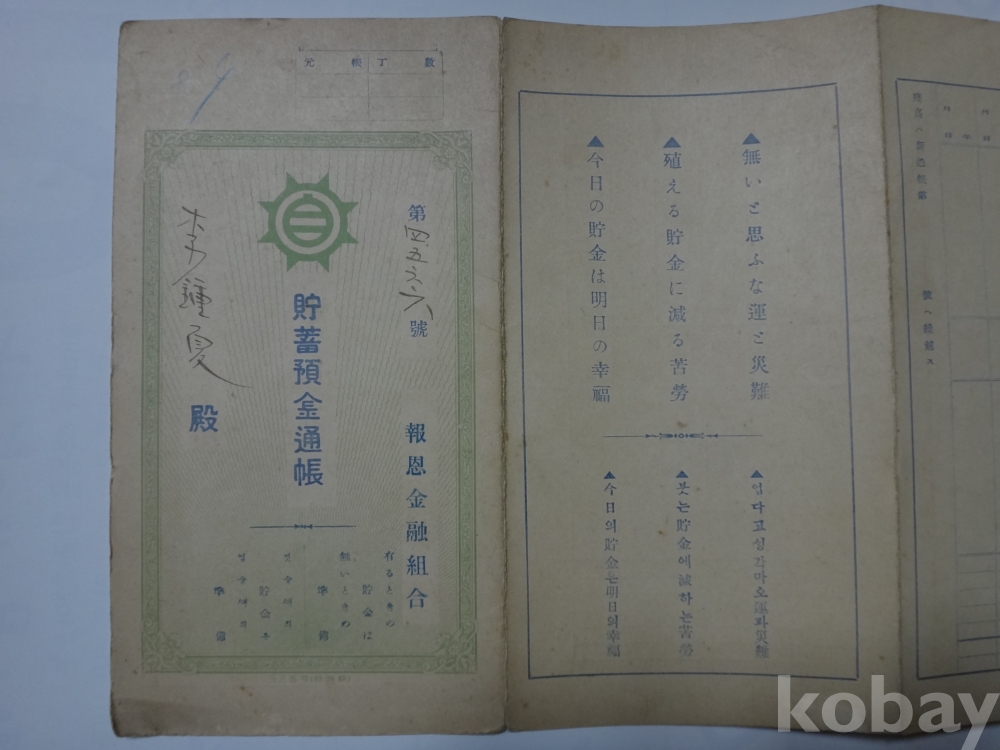 元帳丁數
第四五三六號
報恩金融組合
貯蓄預金通帳
李鍾夏
殿
有るときの
貯金は
無いときの
準備
貯金은
準備
▲無いと思ふな運と災難
▲殖える貯金に減る苦勞
▲今日の貯金は明日の幸福
▲업다고성각마오運과災難
▲붓는貯金에減하는苦勞
▲今日의貯金은明日의幸福
kobay